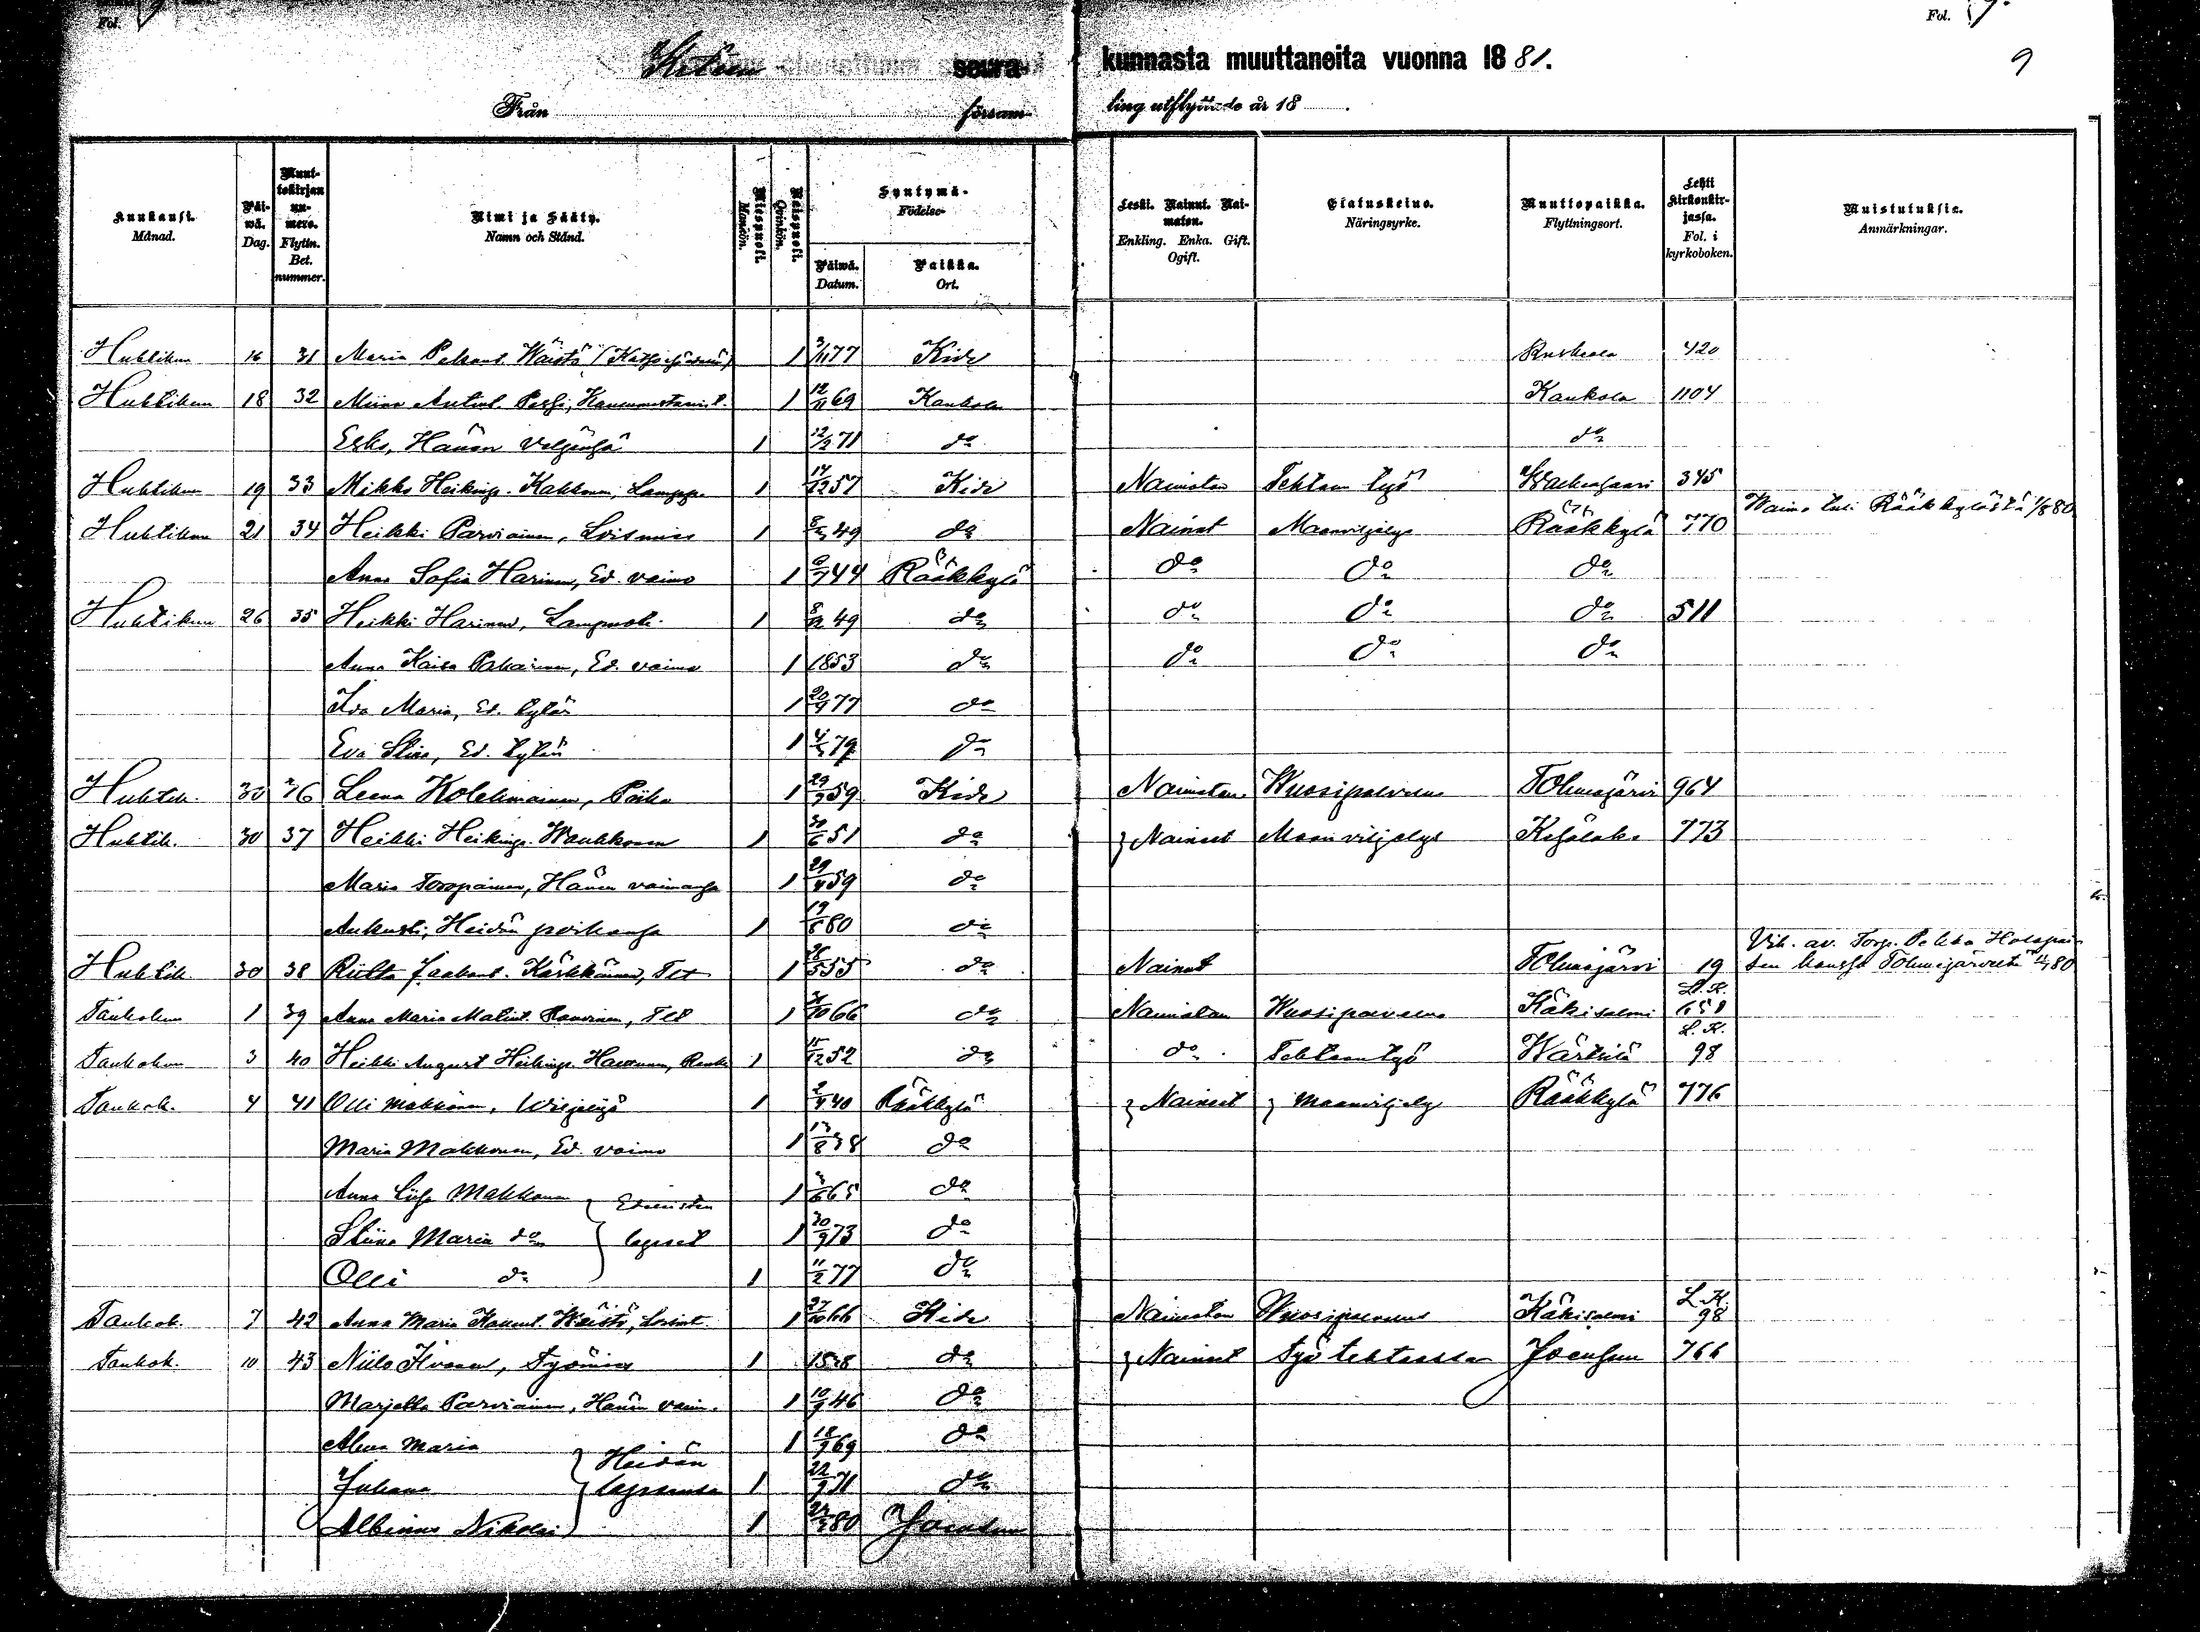 Fol. 9.
Fol. 9.
9
Kiteen seurakunnasta muuttaneita vuonna 1881.
Från församling utflyttade år 18 .
Kuukausi. Månad.
Päiwä. Dag.
Muuttokirjan numero. Flyttn. Bet. nummer.
Nimi ja Sääty. Namn och Stånd.
Miespuoli. Mankön.
Naispuoli. Qvinkön.
Syntymä- Födelse-
Päiwä. Datum.
Paikka. Ort.
Leski. Nainut. Naimaton. Enkling. Enka. Gift. Ogift.
Elatuskeino. Näringsyrke.
Muuttopaikka. Flyttningsort.
Lehti kirkonkirjassa. Fol. i kyrkoboken.
Muistutuksia. Anmärkningar.
Huhtikuu 16 31 Maria Pekant. Wäistö 1 3/11 77 Kide Ruskeala 420
Huhtikuu 18 32 Miina Antint. 1 69 Kaukola Kaukola 1104
Esko, Hänen veljensä 1 12/2 71 do do
Huhtikuu 19 33 Mikko Heikinp. Kakkonen, 1 57 Kide Naimaton Tehtaan työ 345
Huhtikuu 21 34 Heikki Parviainen, Loismies 1 49 do Nainut Maanviljelys Rääkkylä 770 Waimo tuli Rääkkylästä 1/8 80
Anna Sofia Harinen, Ed. vaimo 1 44 Rääkkylä do do do
Huhtikuu 26 35 Heikki Harinen, Lampuoti 1 49 do do do do 511
Anna Kaisa Pakarinen, Ed. vaimo 1 1853 do do do do
Ida Maria, Ed. tytär 1 20/9 77 do
Eva Stina, Ed. tytär 1 79 do
Huhtik. 30 36 Leena Kolehmainen, Piika 1 59 Kide Naimaton Wuosipalvelus Tohmajärvi 964
Huhtik. 30 37 Heikki Heikinp. Wauhkonen 1 30/6 51 do Nainut Maanviljelys Kesälaks 773
Maria Toropainen, Hänen vaimonsa 1 59 do
Aukusti, Heidän poikansa 1 80 do
Huhtik. 30 38 Riitta Jaakont. Kärkkäinen, Tlt 1 55 do Nainut Tohmajärvi 19 Vih. av. Torp. Pekka Hotapaisen kanssa Tohmajärveltä 80
Toukokuu 1 39 Anna Maria Matint. 1 66 do Naimaton Wuosipalvelus Käkisalmi L.K. 658
Toukokuu 3 40 Heikki August Heikinp. Havunen, Renki 1 15/12 52 do do Tehtaan työ Wärtsilä L.K. 98
Toukok. 4 41 Olli Makkonen, Wiljelijä 1 40 Rääkkylä Nainut Maanviljelys Rääkkylä 776
Maria Makkonen, Ed. vaimo 1 13/8 38 do
Anna Liisa Makkonen 1 65 do
Edellisten lapset
Stiina Maria do 1 20/9 73 do
Olli do 1 11/2 77 do
Toukok. 7 42 Anna Maria Wäistö, Loisint. 1 66 Kide Naimaton Wuosipalvelus Käkisalmi L.K. 98
Toukok. 10 43 Niilo Ikonen, Työmies 1 do Nainut Työ tehtaassa Joensuu 766
Marjetta Parviainen, Hänen vaim. 1 46 do
Alma Maria 1 18/9 69 do
Heidän lapsensa
Juhana 1 71 do
Albinus Nikolai 1 80 Joensuu